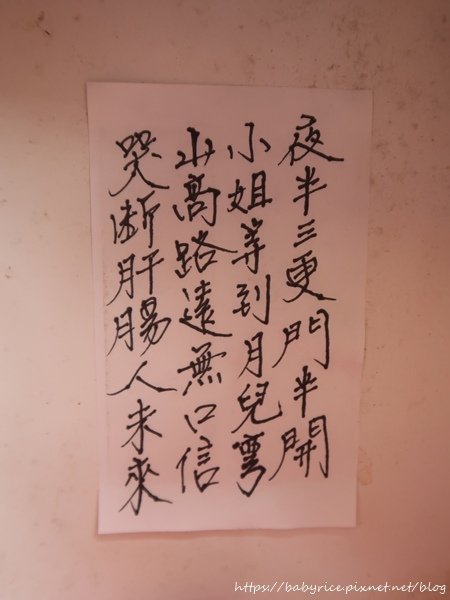 夜半三更門半開
小姐等到月兒彎
山高路遠無口信
哭断肝腸人未來
https://babyrice.pixnet.net/blog